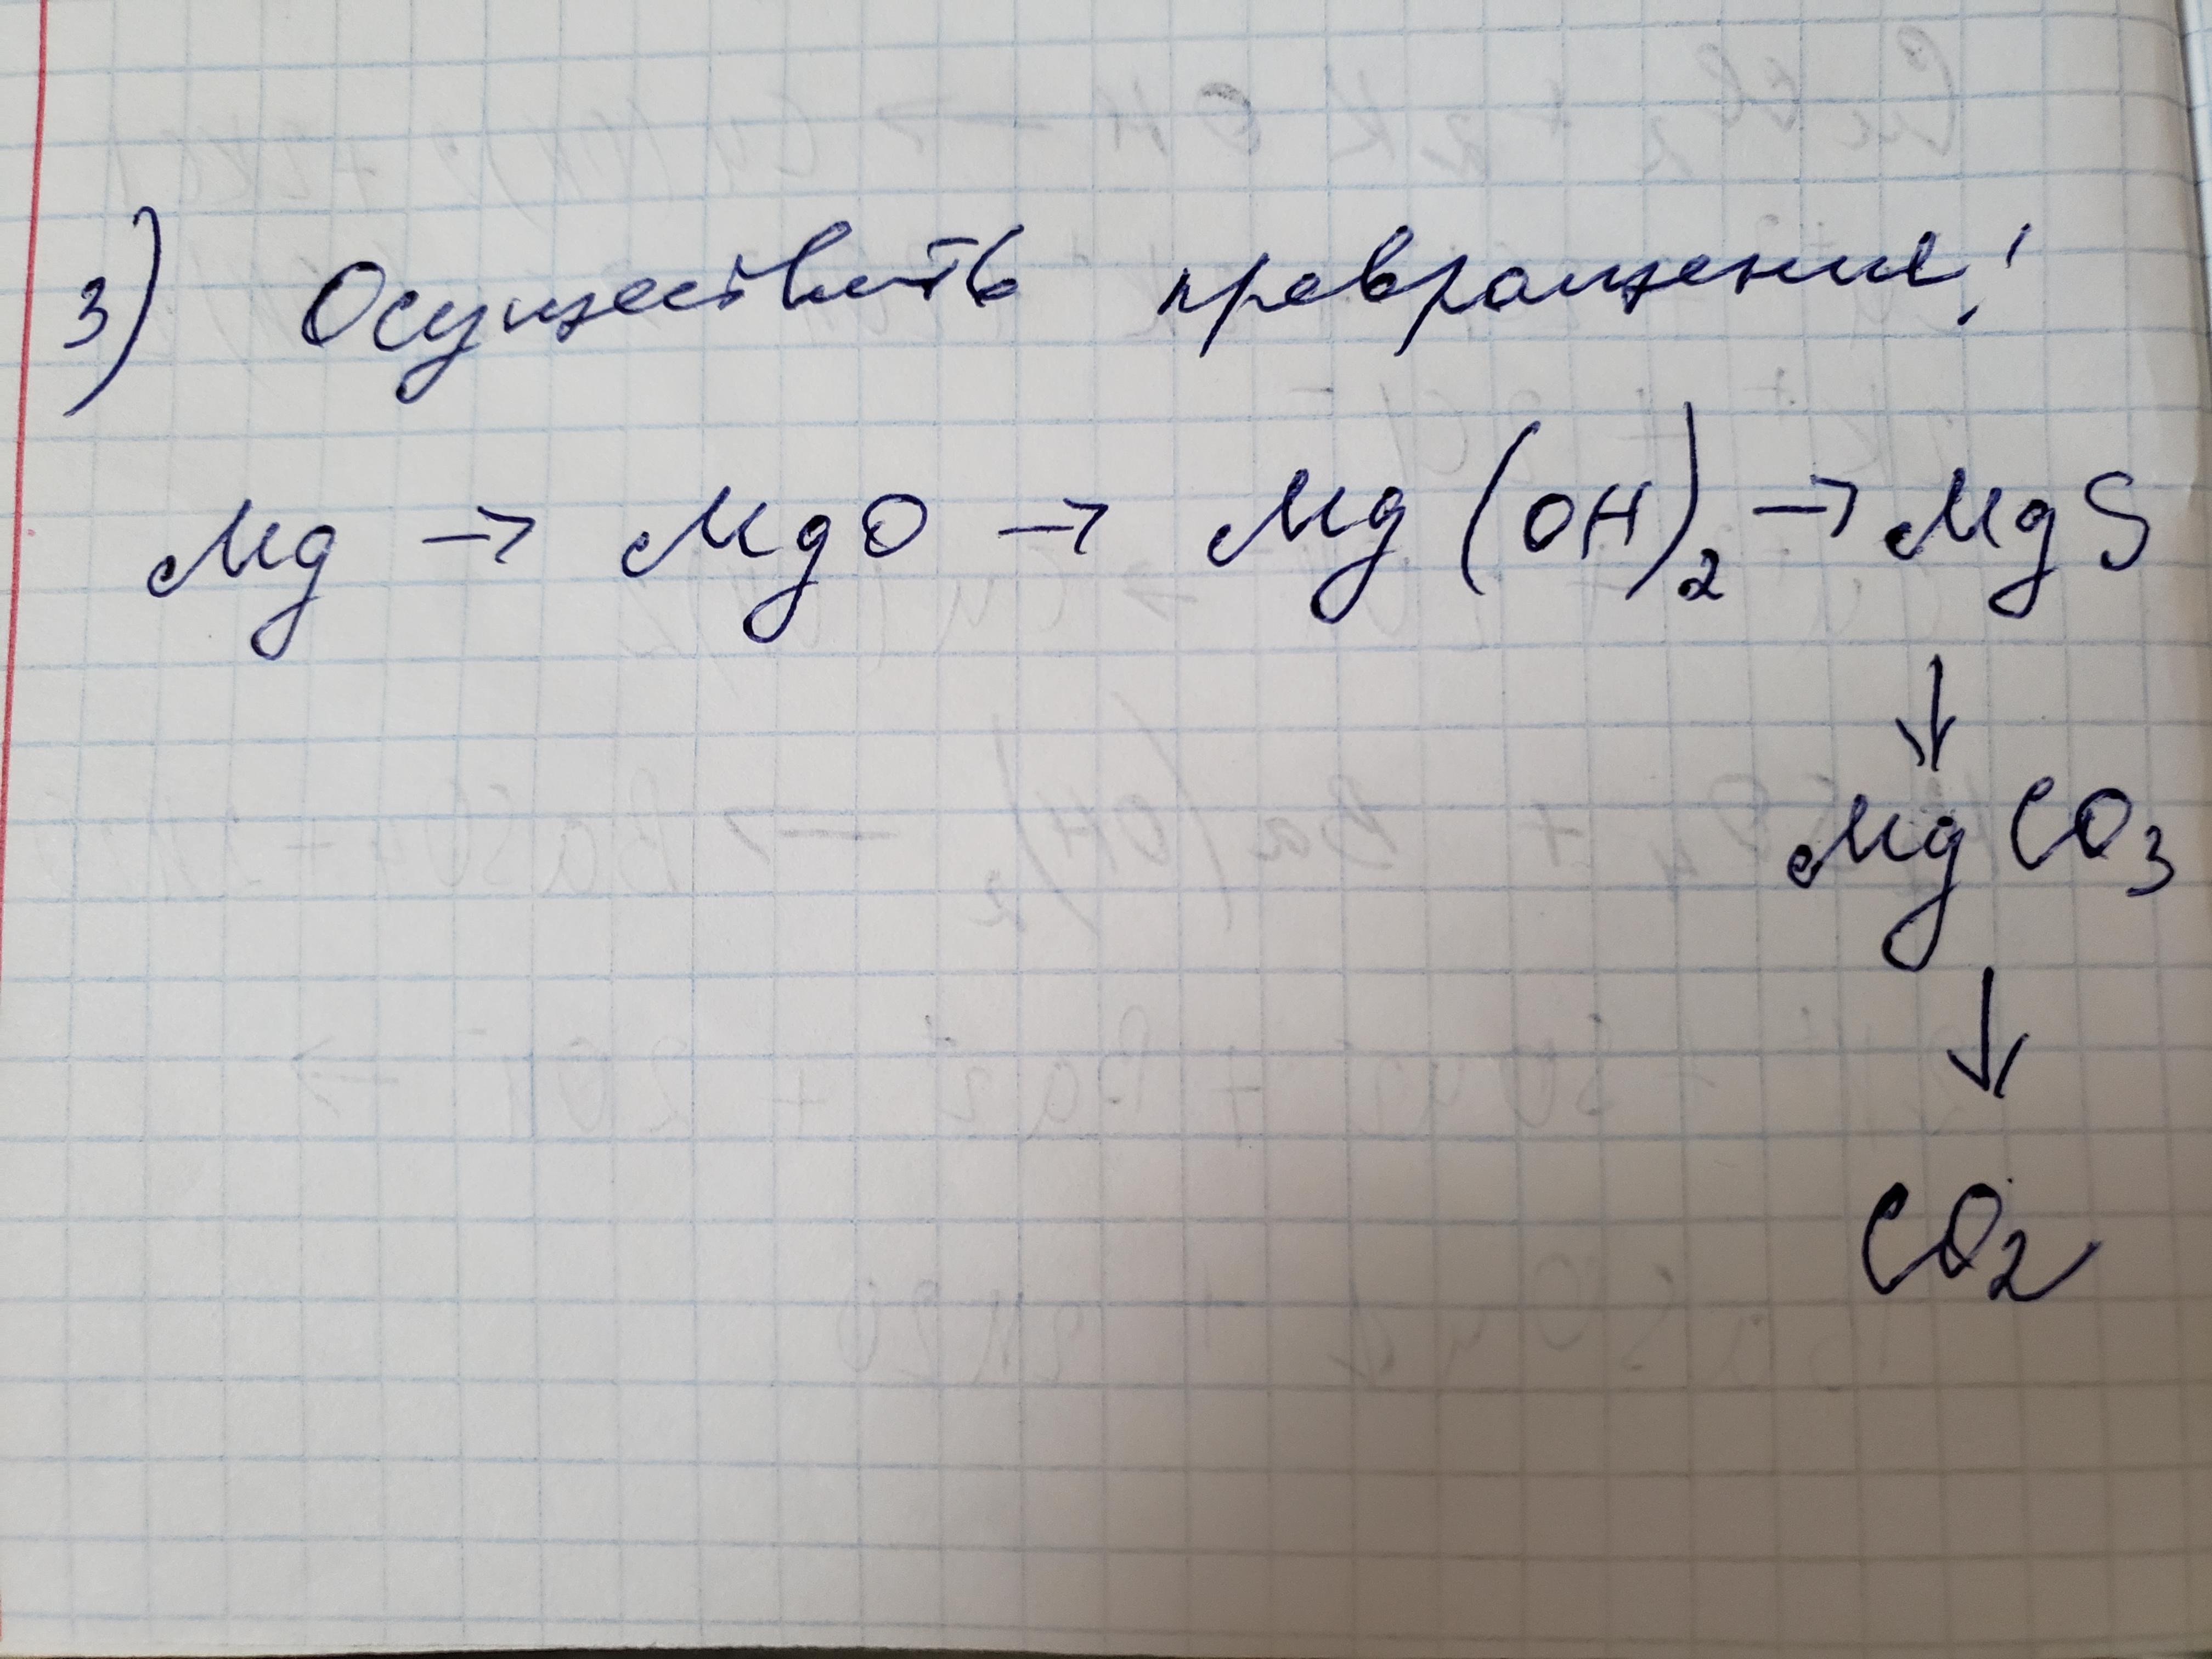 3) Осуществить превращения!
Mg → MgO → Mg(OH)₂ → MgS
↓
MgCO₃
↓
CO₂